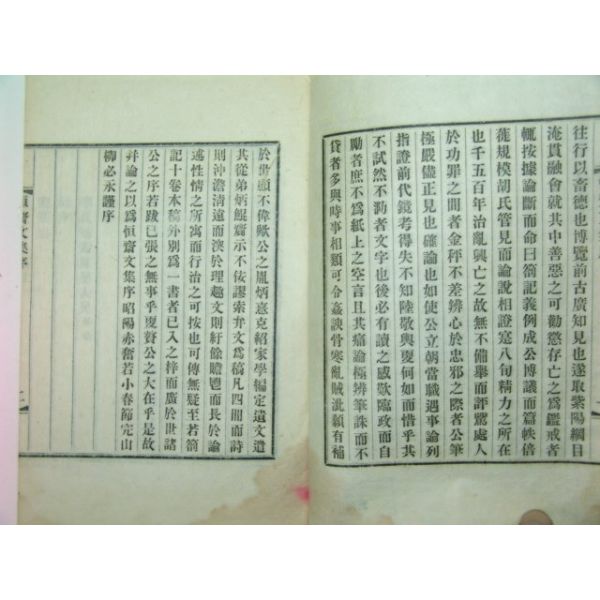 往行以畜德也博覽前古廣知見也遂取紫陽綱目
淹貫融會就其中善惡之可勸懲存亡之爲鑑戒者
輒按據論斷而命曰箚記義例成公博議而篇帙倍
蓰規模胡氏管見而論說相證寔八旬精力之所在
也千五百年治亂興亡之故無不備擧而評騭處人
於功罪之間者金秤不差辨心於忠邪之際者公筆
極嚴儘正見也確論也如使公立朝當職遇事論列
指證前代鏡考得失不知陸敬輿奭何如而惜乎其
不試然不泐者文字也後必有讀之感歎臨政而自
勵者庶不爲紙上之空言且其痛論極辨筆誅而不
貸者多與時事相類可令姦諛骨寒亂賊泚顙有補
於世顧不偉歟公之胤炳憙克紹家學編定遺文遣
其從弟炳鯤齋示不佞謬索弁文爲稿凡四閱而詩
則沖澹淸遠而澳於理趣文則紆餘贍鬯而長於論
述性情之所寓而行治之可按也可傳無疑至若箚
記十卷本稿外別爲一書者已入之梓而廣於世諸
公之序若跋已張之無事乎更贅公之大在乎是故
幷論之以爲恒齋文集序昭陽赤奮若小春節完山
柳必永謹序
恒齋文集序